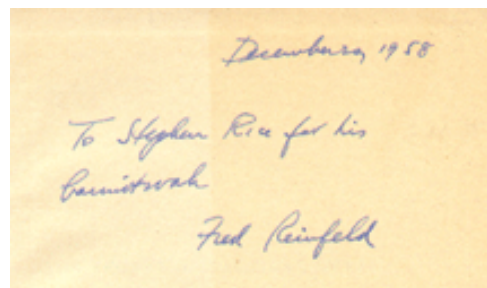 December, 1958
To Stephen Rice for his
barmitzvah
Fred Reinfeld